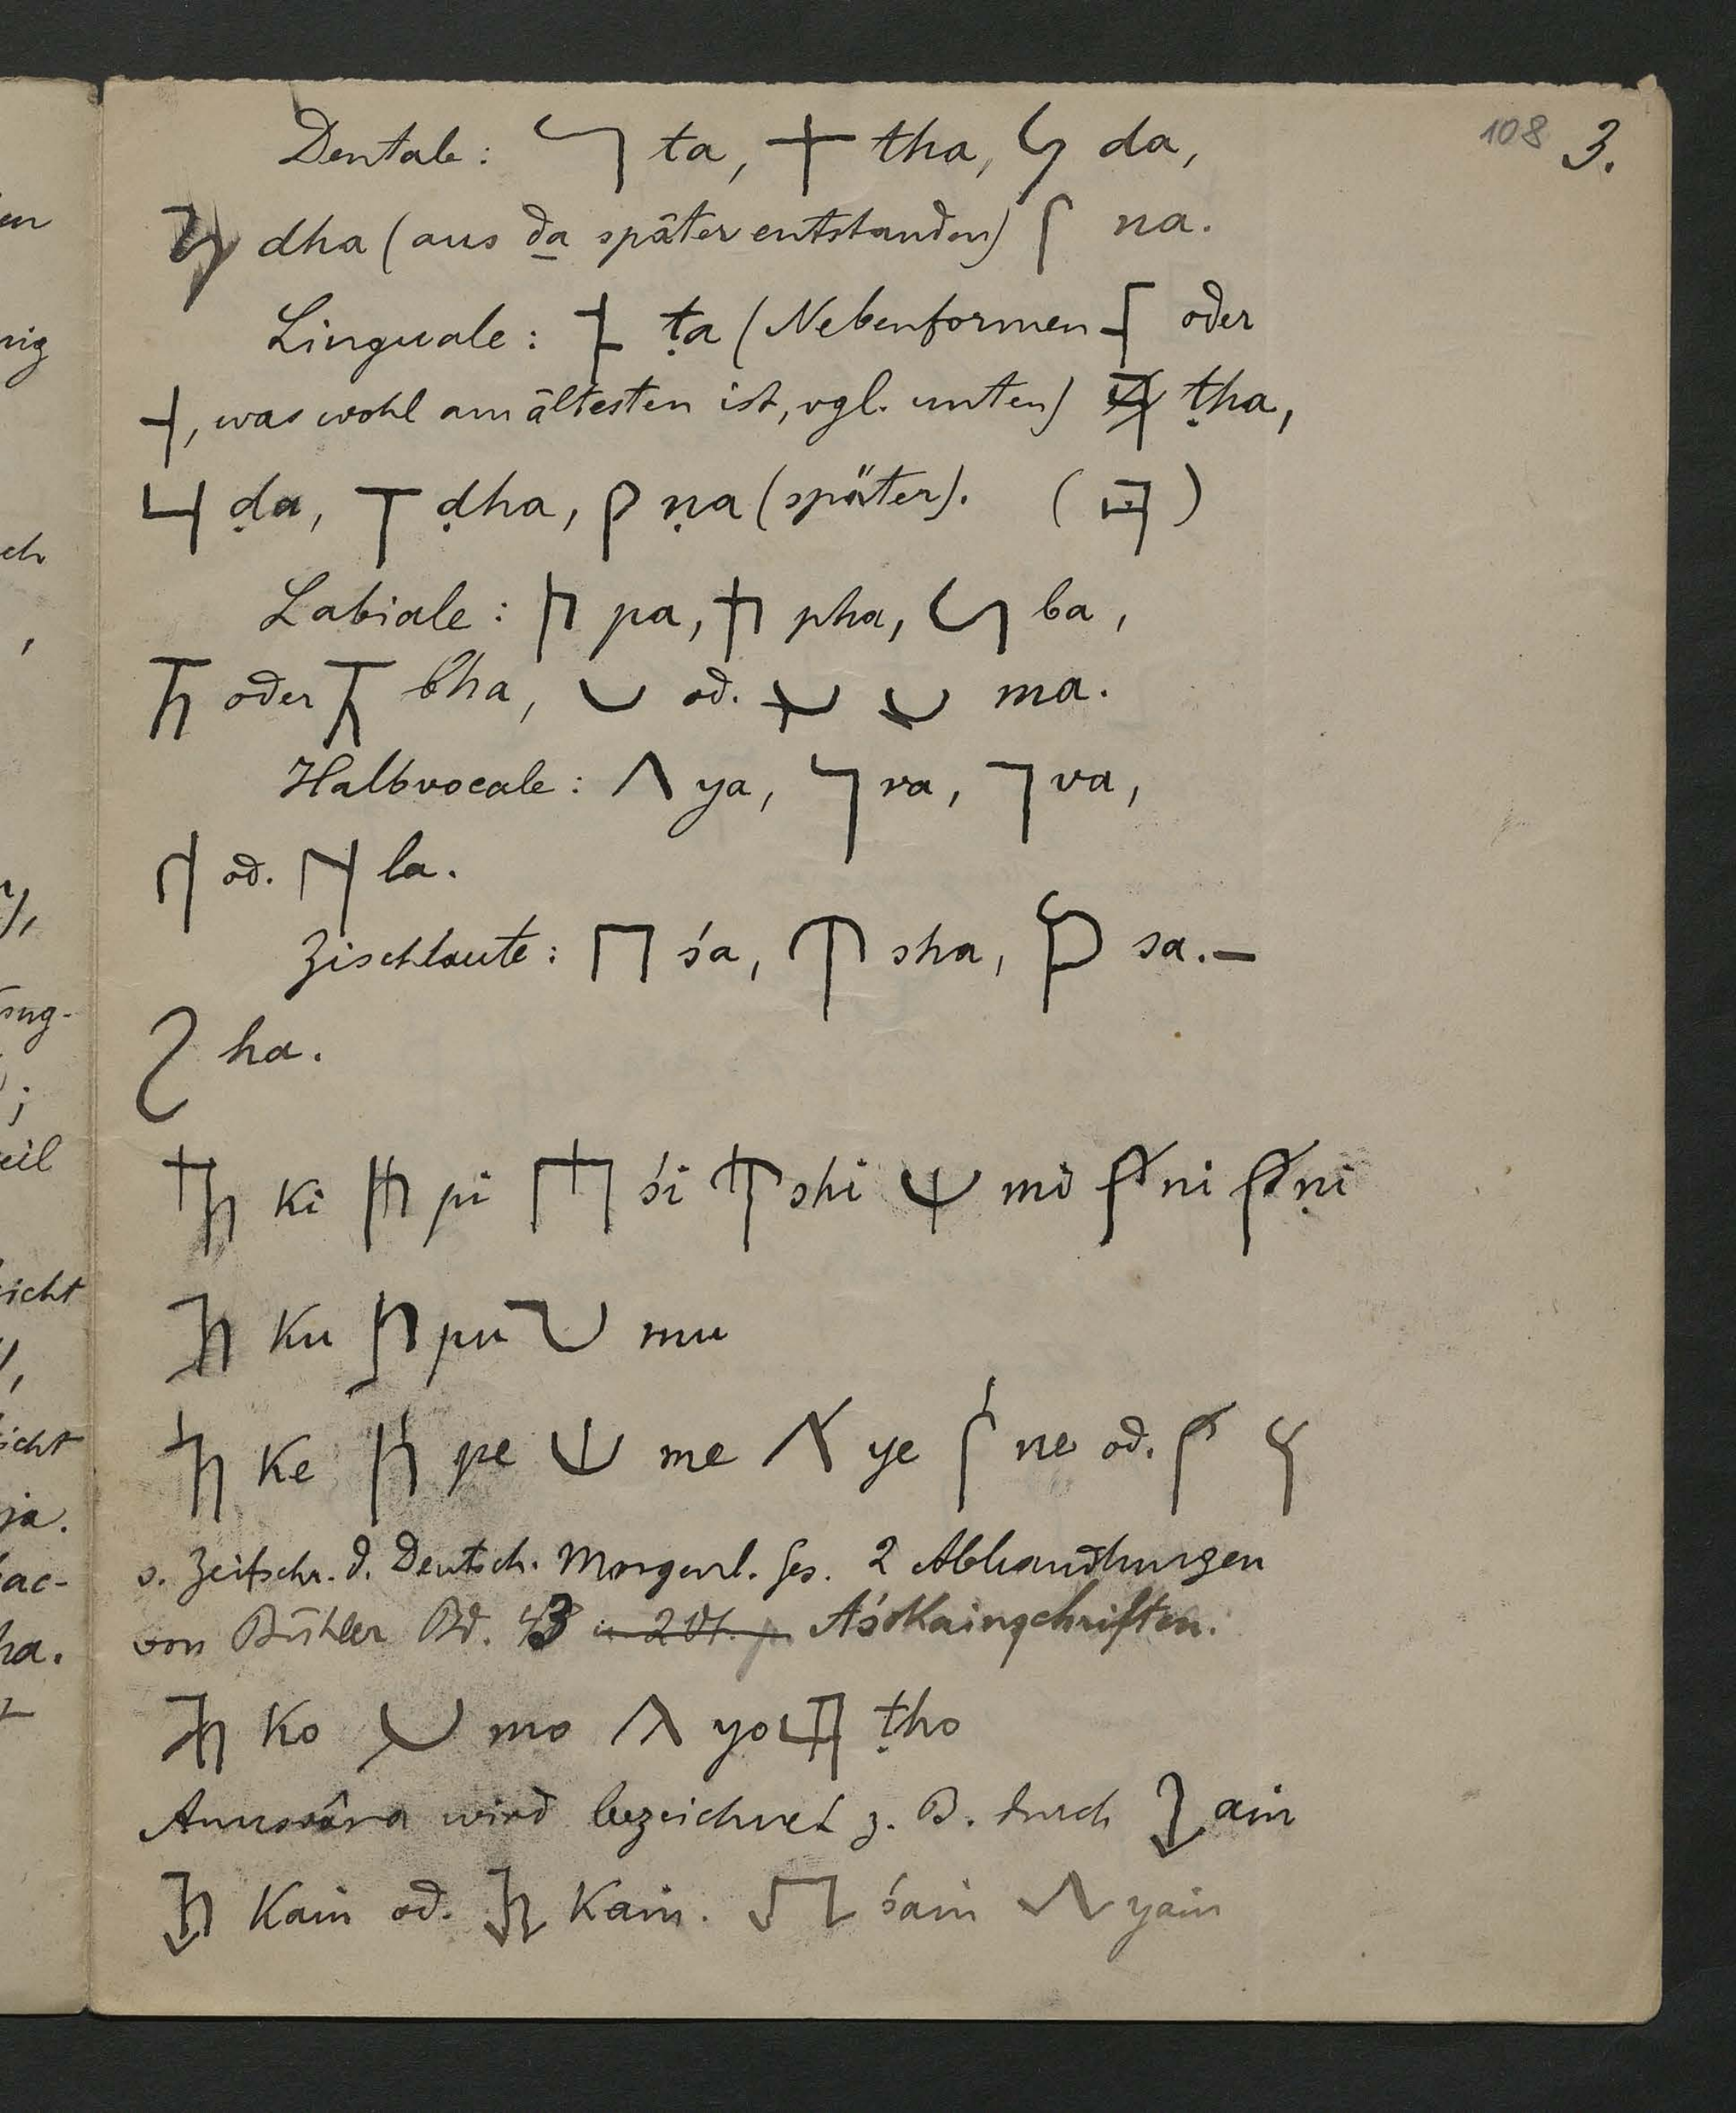 108 3.
Dentale: 𐨟 ta, 𐨠 tha, 𐨡 da,
𐨢 dha (aus da später entstanden) 𐨣 na.
Linguale: 𐨚 ṭa (Nebenformen oder
, was wohl am ältesten ist, vgl. unten) ṭha,
𐨜 ḍa, 𐨝 ḍha, 𐨞 ṇa (später). (𐨛)
Labiale: 𐨤 pa, 𐨥 pha, 𐨦 ba,
𐨧 oder 𐨧 bha, 𐨨 od. ma.
Halbvocale: 𐨩 ya, 𐨪 ra, 𐨬 va,
𐨫 od. 𐨫 la.
Zischlaute: 𐨭 śa, 𐨮 sha, 𐨯 sa.—
𐨱 ha.
𐨐𐨁 ki 𐨤𐨁 pi 𐨭𐨁 śi 𐨮𐨁 shi 𐨨𐨁 mi 𐨣𐨁 ni 𐨞𐨁 ṇi
𐨐𐨂 ku 𐨤𐨂 pu 𐨨𐨂 mu
𐨐𐨅 ke 𐨤𐨅 pe 𐨨𐨅 me 𐨩𐨅 ye 𐨣𐨅 ne od. 𐨣𐨅
s. Zeitschr. d. Deutsch. Morgenl. Ges. 2 Abhandlungen
von Bühler Bd. 43 Aśokainschriften.
𐨐𐨆 ko 𐨨𐨆 mo 𐨩𐨆 yo 𐨛𐨆 ṭho
Anusvâra wird bezeichnet z. B. durch 𐨀𐨎 aṁ
𐨐𐨎 kaṁ od. 𐨐𐨎 kaṁ. 𐨭𐨎 śaṁ 𐨩𐨎 yaṁ